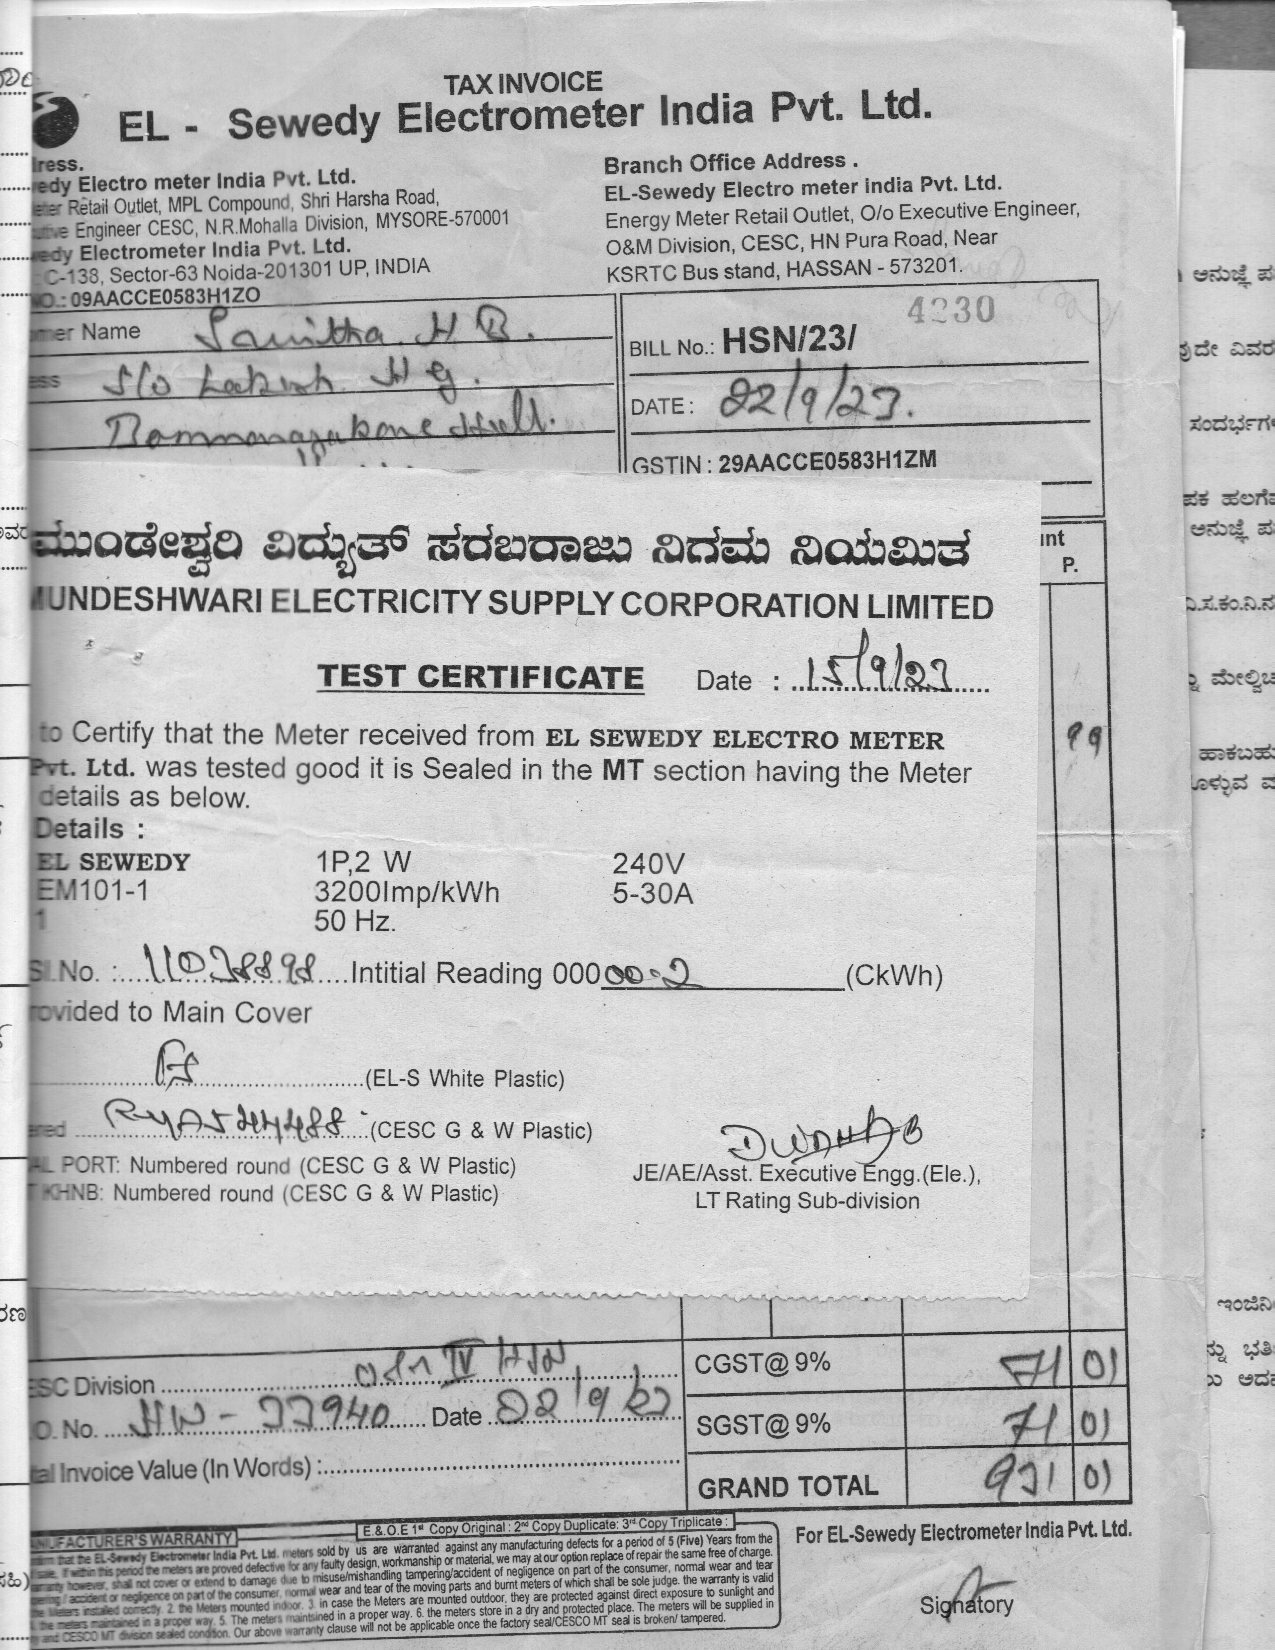 TAX INVOICE
EL - Sewedy Electrometer India Pvt. Ltd.
dress.
edy Electro meter India Pvt. Ltd.
Retail Outlet, MPL Compound, Shri Harsha Road,
Engineer CESC, N.R.Mohalla Division, MYSORE-570001
edy Electrometer India Pvt. Ltd.
C-138, Sector-63 Noida-201301 UP, INDIA
NO.: 09AACCE0583H1ZO
Branch Office Address .
EL-Sewedy Electro meter india Pvt. Ltd.
Energy Meter Retail Outlet, O/o Executive Engineer,
O&M Division, CESC, HN Pura Road, Near
KSRTC Bus stand, HASSAN - 573201.
mer Name H B.
ess S/o H g.
4230
BILL No.: HSN/23/
DATE : 22/9/23.
GSTIN : 29AACCE0583H1ZM
unt
P.
99
ಮುಂಡೇಶ್ವರಿ ವಿದ್ಯುತ್ ಸರಬರಾಜು ನಿಗಮ ನಿಯಮಿತ
MUNDESHWARI ELECTRICITY SUPPLY CORPORATION LIMITED
TEST CERTIFICATE Date : 15/9/23
to Certify that the Meter received from EL SEWEDY ELECTRO METER
Pvt. Ltd. was tested good it is Sealed in the MT section having the Meter
details as below.
Details :
EL SEWEDY 1P,2 W 240V
EM101-1 3200Imp/kWh 5-30A
1 50 Hz.
Sl.No. : 11038898 Intitial Reading 00000.2 (CkWh)
rovided to Main Cover
(EL-S White Plastic)
(CESC G & W Plastic)
AL PORT: Numbered round (CESC G & W Plastic)
KHNB: Numbered round (CESC G & W Plastic)
JE/AE/Asst. Executive Engg.(Ele.),
LT Rating Sub-division
ESC Division IV HSN
.O. No. Date 22/9/23
tal Invoice Value (In Words) :
CGST@ 9% 71 01
SGST@ 9% 71 01
GRAND TOTAL 931 01
NUFACTURER'S WARRANTY
E. & O.E 1st Copy Original : 2nd Copy Duplicate: 3rd Copy Triplicate :
that the EL-Sewedy Electrometer India Pvt. Ltd. meters sold by us are warranted against any manufacturing defects for a period of 5 (Five) Years from the
sale. if within this period the meters are proved defective for any faulty design, workmanship or material, we may at our option replace of repair the same free of charge.
however, shall not cover or extend to damage due to misuse/mishandling tampering/accident of negligence on part of the consumer, normal wear and tear
/ accident or negligence on part of the consumer, normal wear and tear of the moving parts and burnt meters of which shall be sole judge. the warranty is valid
Meters installed correctly. 2. the Meters mounted indoor. 3. in case the Meters are mounted outdoor, they are protected against direct exposure to sunlight and
the meters maintained in a proper way. 5. The meters maintained in a proper way. 6. the meters store in a dry and protected place. The meters will be supplied in
and CESCO MT division sealed condition. Our above warranty clause will not be applicable once the factory seal/CESCO MT seal is broken/ tampered.
For EL-Sewedy Electrometer India Pvt. Ltd.
Signatory
ಅನುಜ್ಞೆ ಪ
ವುದೇ ವಿವರ
ಸಂದರ್ಭಗಳ
ಪಕ ಹಲಗೆ
ಅನುಜ್ಞೆ ಪ
ವಿ.ಸ.ಕಂ.ನಿ.ನ
ಮೇಲ್ವಿಚ
ಹಾಕಬಹು
ಳ್ಳುವ ವ
ಇಂಜಿನಿ
ನ್ನು ಭರ್ತಿ
ಅದ